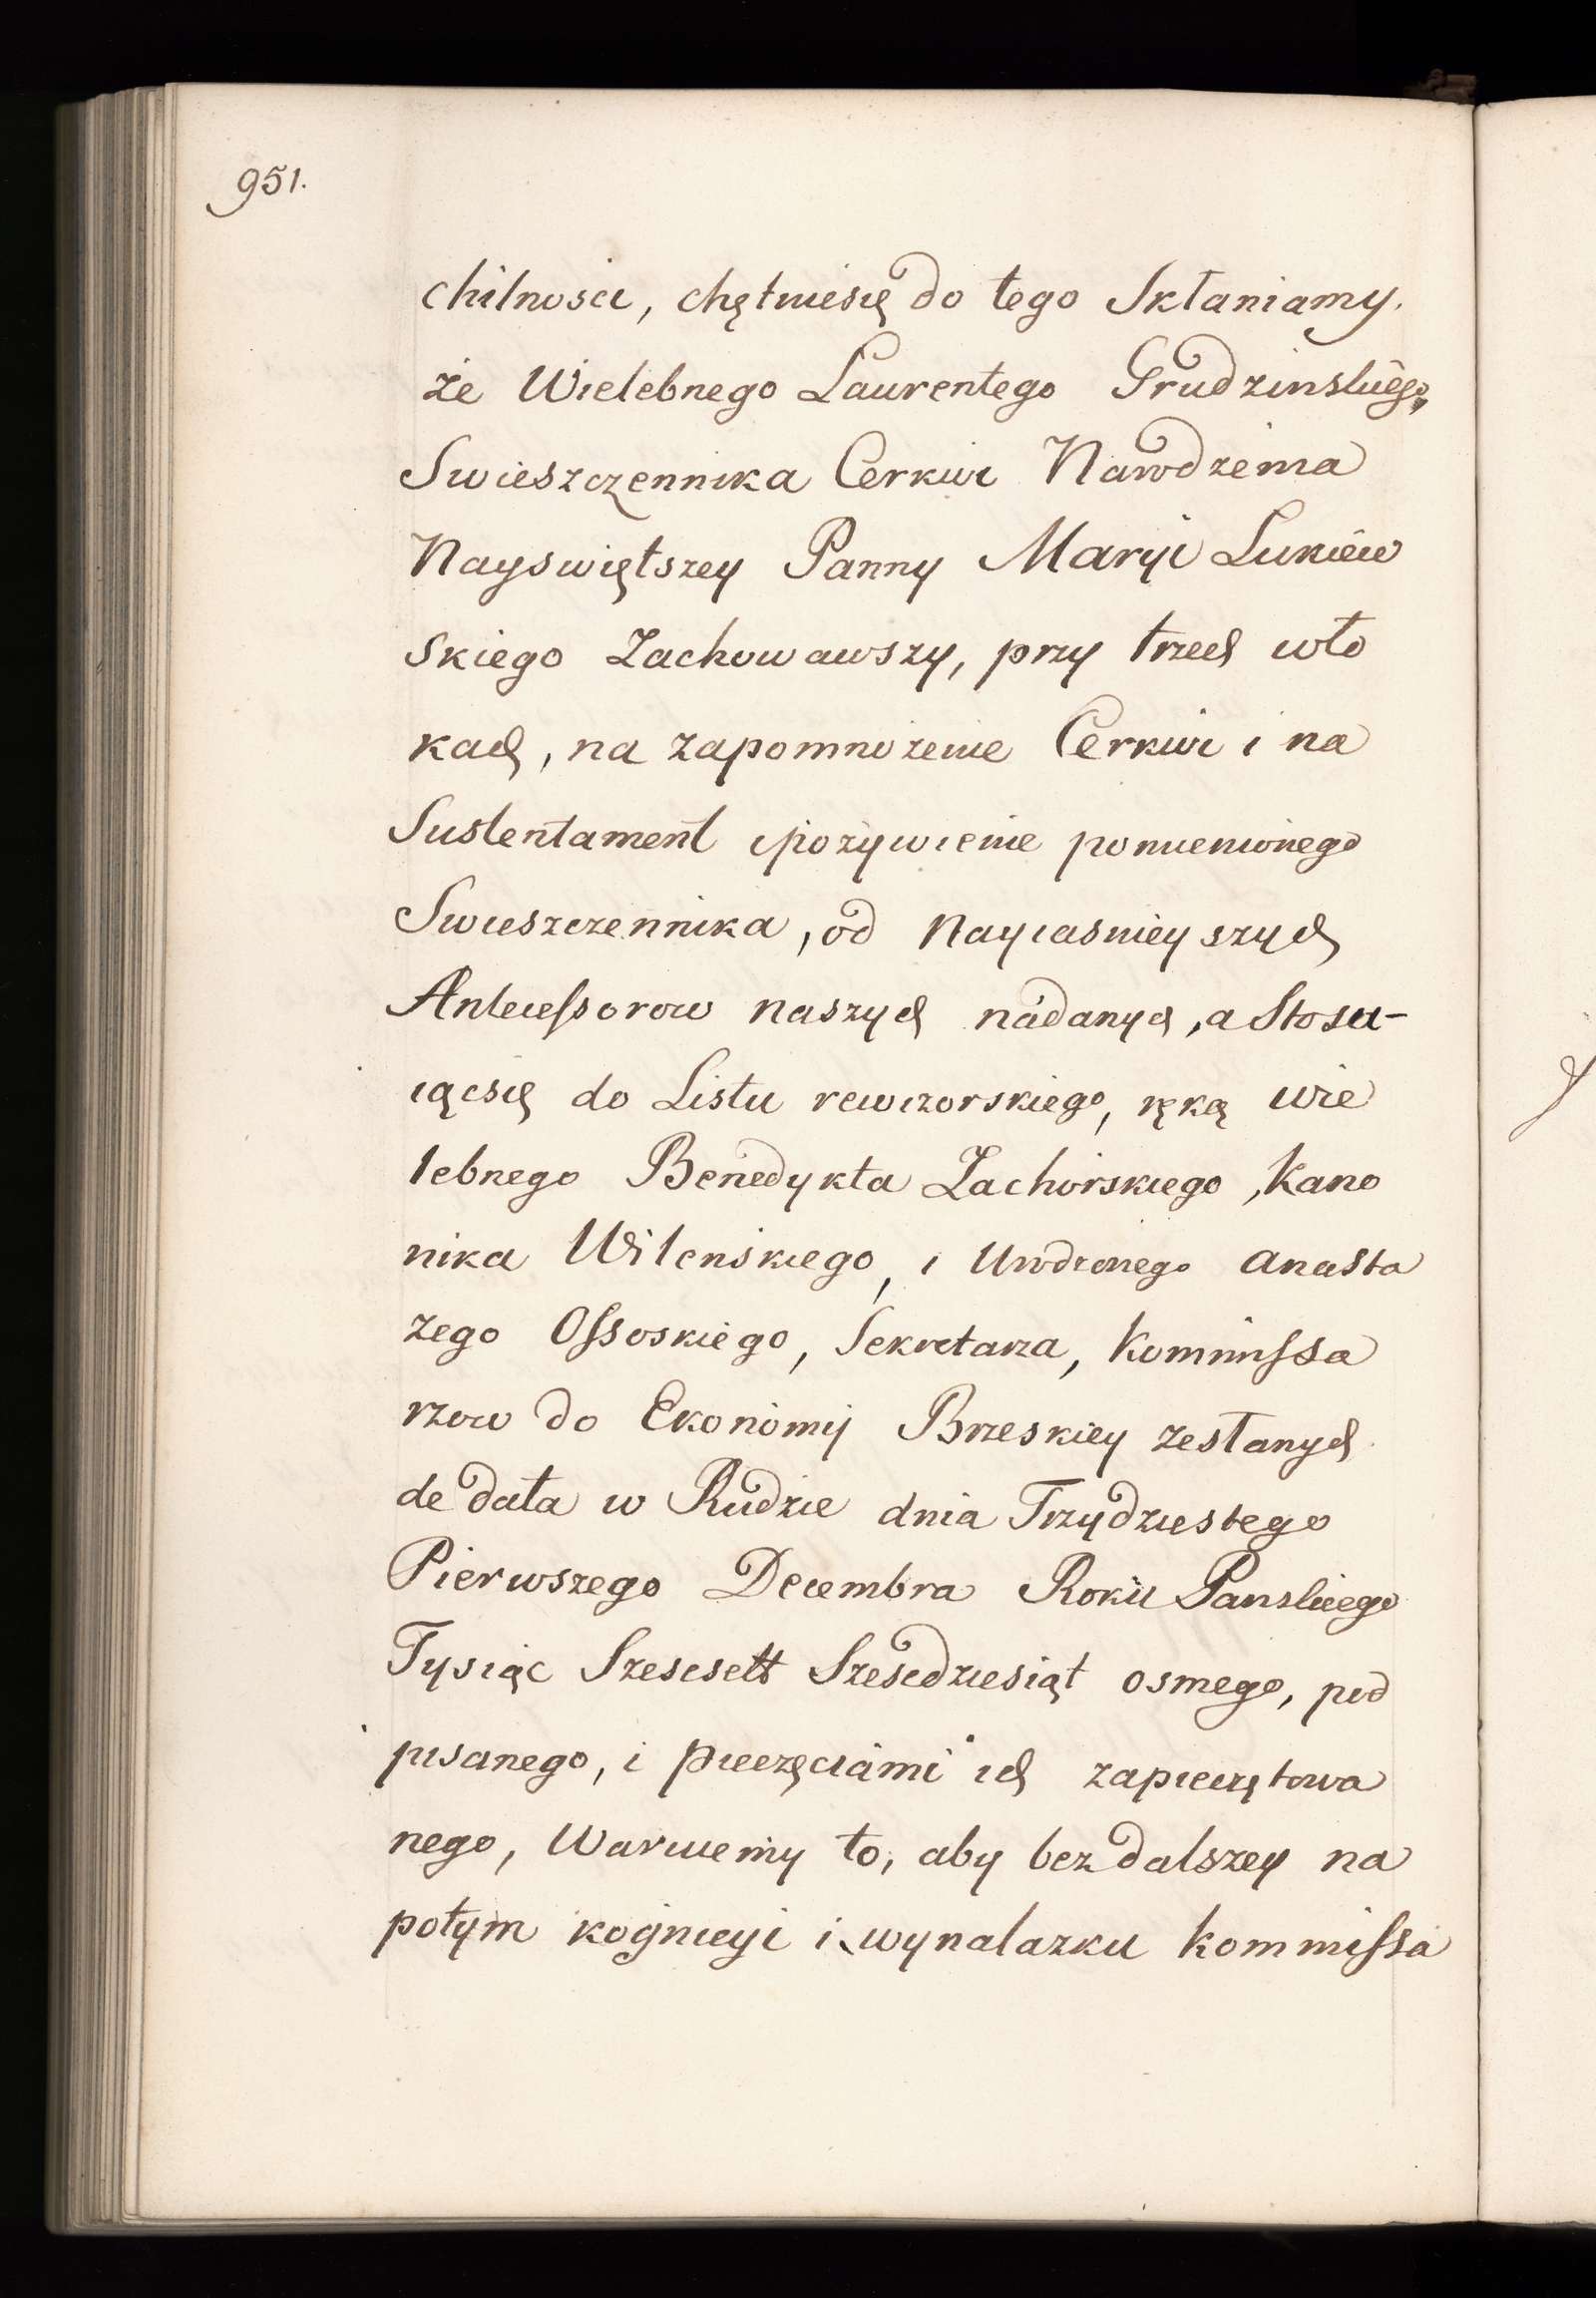 951.
chilności, chętniesię do tego Skłaniamy.
że Wielebnego Laurentego Grudzinskiego,
Swieszczennika Cerkwi Narodzenia
Nayswiętszey Panny Maryi Lukiew
skiego Zachowawszy, przy trzech wło
kach, na zapomnożenie Cerkwi i na
Sustentament ipożywienie pomienionego
Swieszczennika, od Nayiasnieyszych
Antecessorow naszych nadanych, a Stosu-
iącsię do Listu rewizorskiego, ręką wie
lebnego Benedykta Zachorskiego, Kano
nika Wilenskiego, i Urodzonego Anasta
zego Ossoskiego, Sekretarza, Kommissa
rzow do Ekonomij Brzeskiey zesłanych
de data w Rudzie dnia Trzydziestego
Pierwszego Decembra Roku Panskiego
Tysiąc Szescsett Szescdziesiąt osmego, pod
pisanego, i pieczęciami ich zapieczętowa
nego, Waruiemy to, aby bez dalszey na
potym kognicyi i wynalazku kommissa